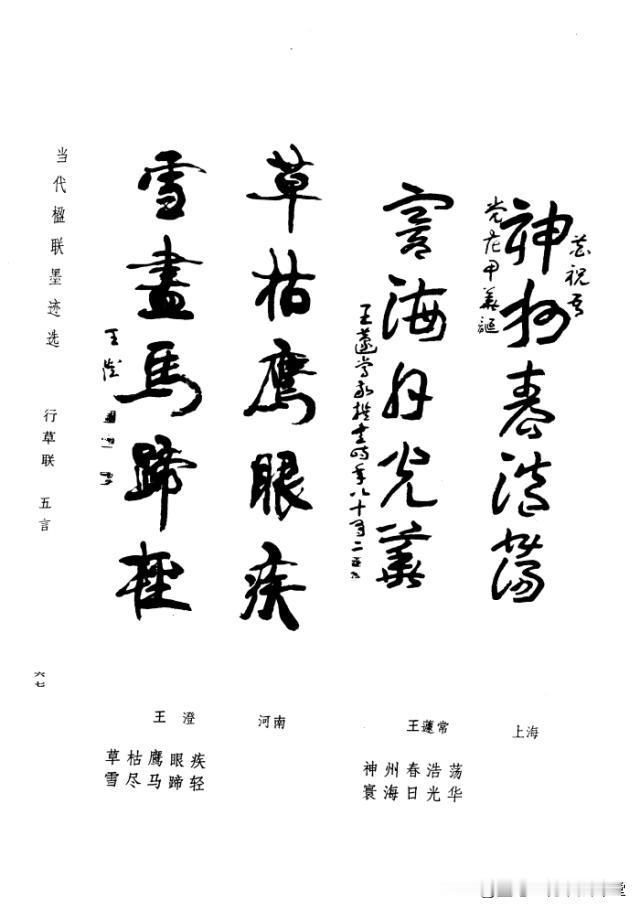 恭祝吾
党花甲華誕
神州春浩蕩
寰海日光華
王蘧常敬撰書時年八十有二
草枯鷹眼疾
雪盡馬蹄輕
王澄
当代楹联墨迹选 行草联 五言
六七
上海
王蘧常
神州春浩荡
寰海日光华
河南
王澄
草枯鹰眼疾
雪尽马蹄轻